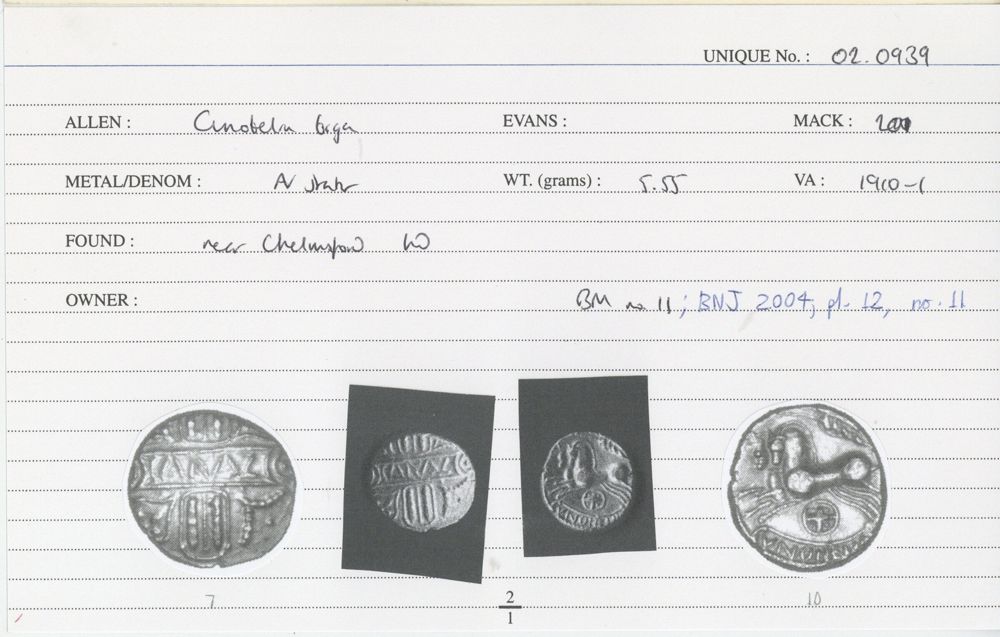 UNIQUE No. : 02.0939
ALLEN : Cunobelin biga EVANS : MACK : 200
METAL/DENOM : AV stater WT. (grams) : 5.55 VA : 1910-1
FOUND : near Chelmsford
OWNER : BM no. 11; BNJ 2004, pl. 12, no. 11
7 2 10
1